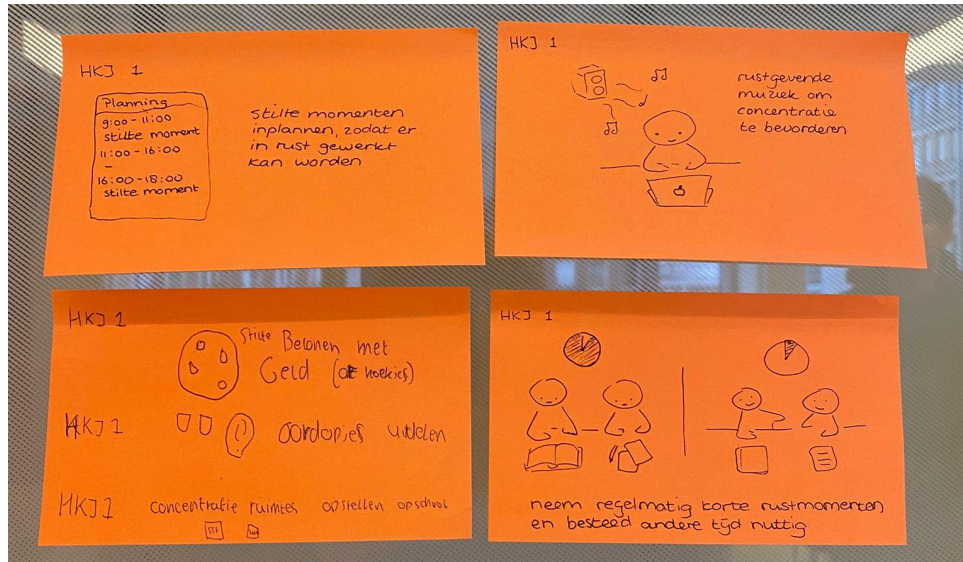 HKJ 1
Planning
9:00 - 11:00
stilte moment
11:00 - 16:00
–
16:00 - 18:00
stilte moment
stilte momenten
inplannen, zodat er
in rust gewerkt
kan worden
HKJ 1
rustgevende
muziek om
concentratie
te bevorderen
HKJ 1
Stilte Belonen met
Geld (of koekjes)
HKJ 1
oordopjes uitdelen
HKJ 1
concentratie ruimtes opstellen op school
HKJ 1
neem regelmatig korte rustmomenten
en besteed andere tijd nuttig